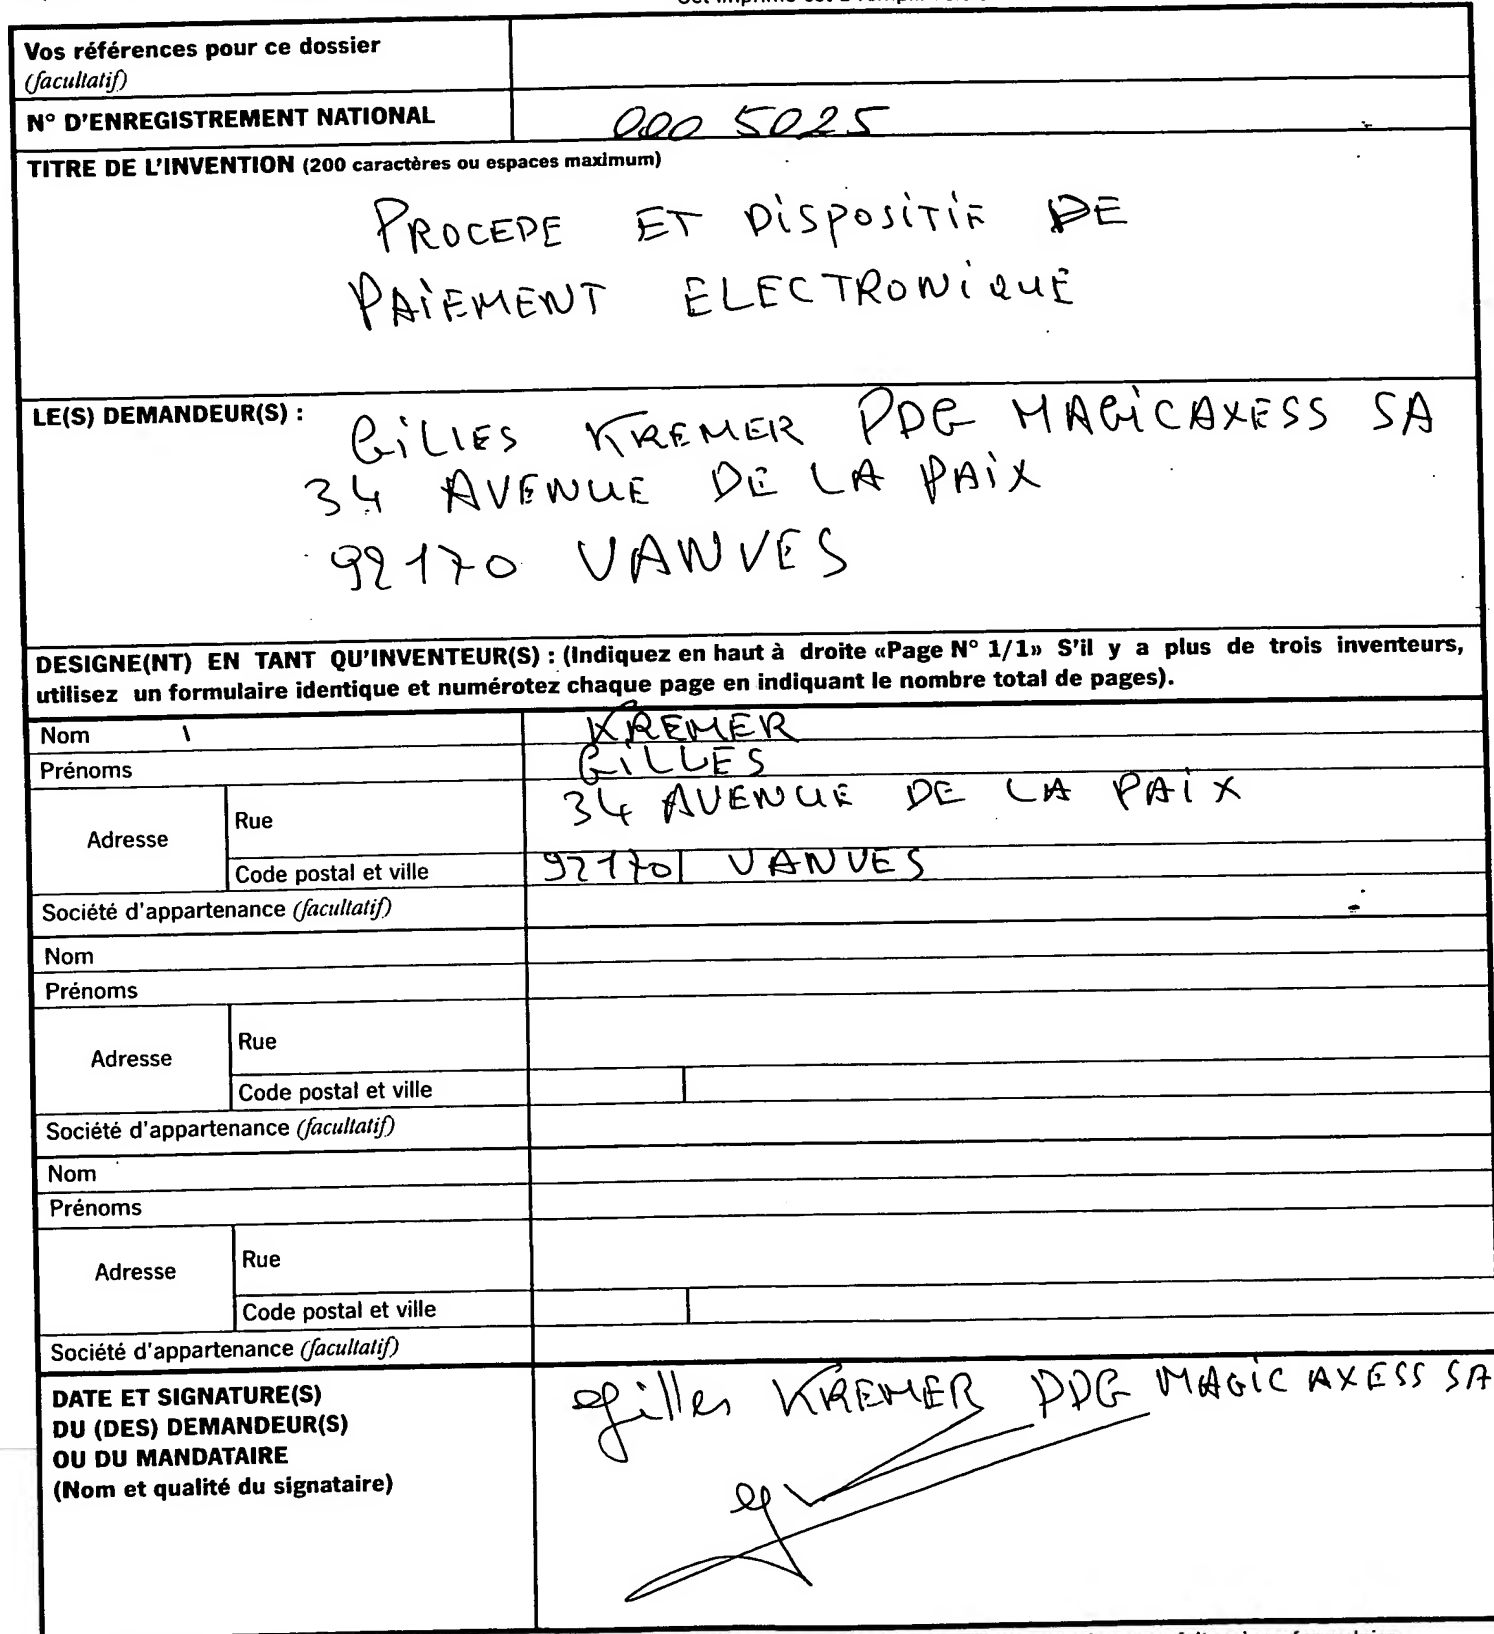 Vos références pour ce dossier
(facultatif)
N° D'ENREGISTREMENT NATIONAL 000 5025
TITRE DE L'INVENTION (200 caractères ou espaces maximum)
PROCEDE ET DISPOSITIF DE
PAIEMENT ELECTRONIQUE
LE(S) DEMANDEUR(S) :
GILLES KREMER PDG MAGICAXESS SA
34 AVENUE DE LA PAIX
92170 VANVES
DESIGNE(NT) EN TANT QU'INVENTEUR(S) : (Indiquez en haut à droite «Page N° 1/1» S'il y a plus de trois inventeurs,
utilisez un formulaire identique et numérotez chaque page en indiquant le nombre total de pages).
Nom KREMER
Prénoms GILLES
Adresse Rue 34 AVENUE DE LA PAIX
Code postal et ville 92170 VANVES
Société d'appartenance (facultatif)
Nom
Prénoms
Adresse Rue
Code postal et ville
Société d'appartenance (facultatif)
Nom
Prénoms
Adresse Rue
Code postal et ville
Société d'appartenance (facultatif)
DATE ET SIGNATURE(S)
DU (DES) DEMANDEUR(S)
OU DU MANDATAIRE
(Nom et qualité du signataire)
Gilles KREMER PDG MAGIC AXESS SA